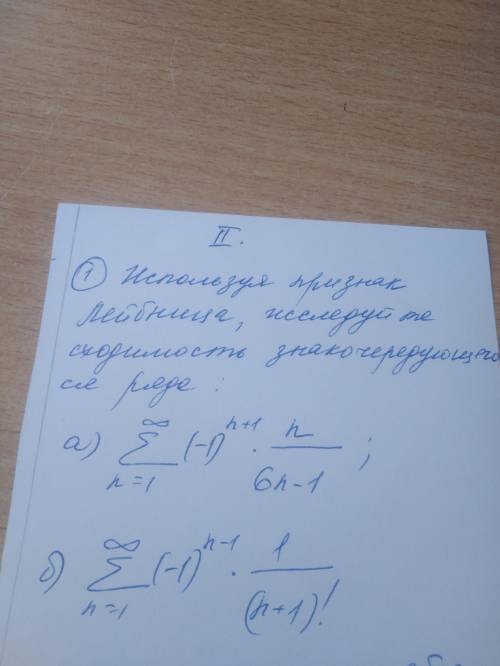 II.
① Используя признак
Лейбница, исследуйте
сходимость знакочередующего
ся ряда :
а) ∑ₙ₌₁^∞ (-1)ⁿ⁺¹ · n/(6n-1) ;
б) ∑ₙ₌₁^∞ (-1)ⁿ⁻¹ · 1/(n+1)!